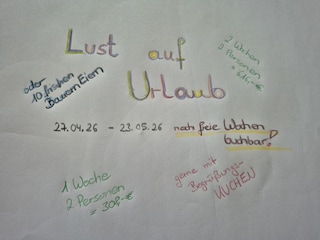 Lust auf
Urlaub
oder
10 frischen
Bauern Eiern
2 Wochen
2 Personen
= 616,-€
27.04.26 - 23.05.26 noch freie Wochen
buchbar!
1 Woche
2 Personen
= 308,-€
gerne mit
Begrüßungs-
KUCHEN